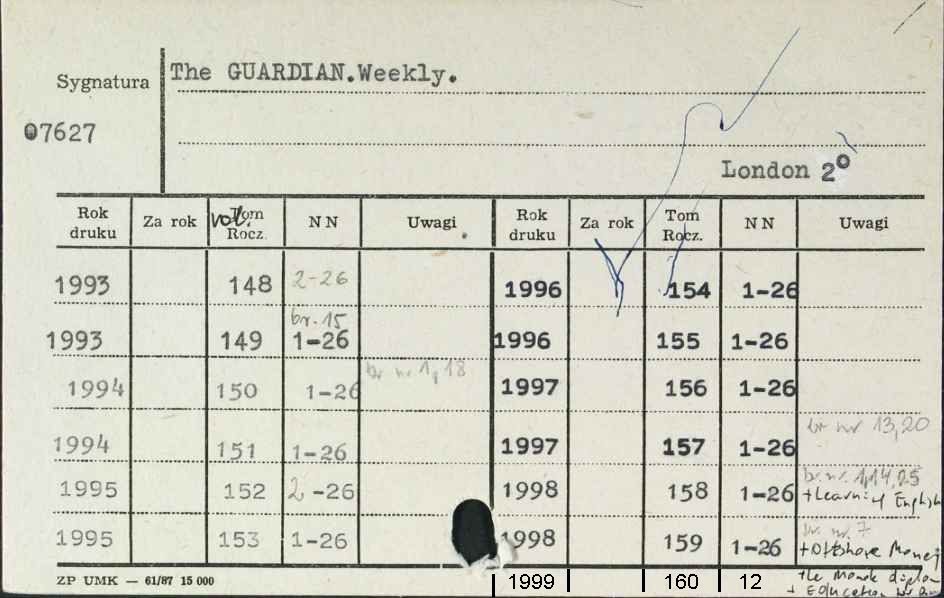 The GUARDIAN.Weekly.
Sygnatura
07627
London 2°
Rok druku Za rok vol. Tom Rocz. NN Uwagi Rok druku Za rok Tom Rocz. NN Uwagi
1993 148 2-26 1996 154 1-26
br. 15
1993 149 1-26 1996 155 1-26
br nr 1, 18
1994 150 1-26 1997 156 1-26
br nr 13,20
1994 151 1-26 1997 157 1-26
br. nr. 1,14,25
1995 152 2-26 1998 158 1-26 + Learning English
br. nr. 7
1995 153 1-26 1998 159 1-26 + Offshore Money
ZP UMK — 61/87 15 000 1999 160 12 + Le Monde diplom
+ Education